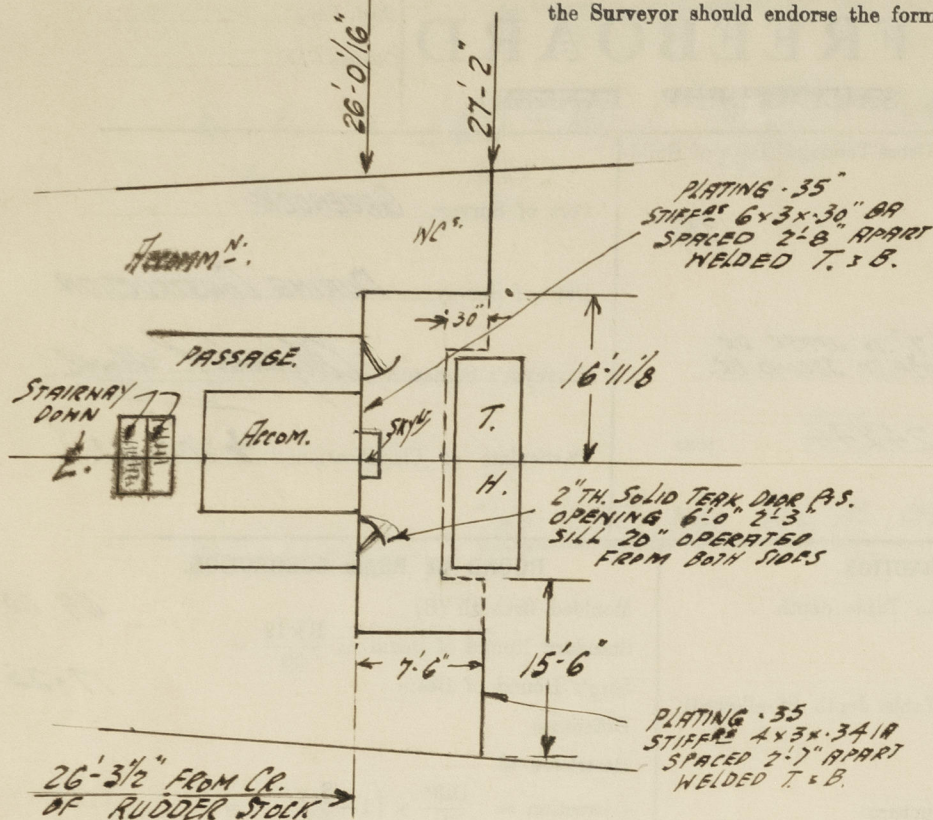 the Surveyor should endorse the form
26'-0 1/16"
27'-2"
PLATING ·35"
STIFFRS 6 x 3 x ·30" BA
SPACED 2'-8" APART
WELDED T. & B.
ACCOMMN.
WCS.
30"
PASSAGE.
16'-11 1/8
STAIRWAY
DOWN
ACCOM.
SKYLT
T.
H.
2" TH. SOLID TEAK DOOR P&S.
OPENING 6'-0" 2'-3"
SILL 20" OPERATED
FROM BOTH SIDES
7'-6"
15'-6"
PLATING ·35
STIFFRS 4 x 3 x ·34 IA
SPACED 2'-7" APART
WELDED T. & B.
26'-3 1/2" FROM CR.
OF RUDDER STOCK